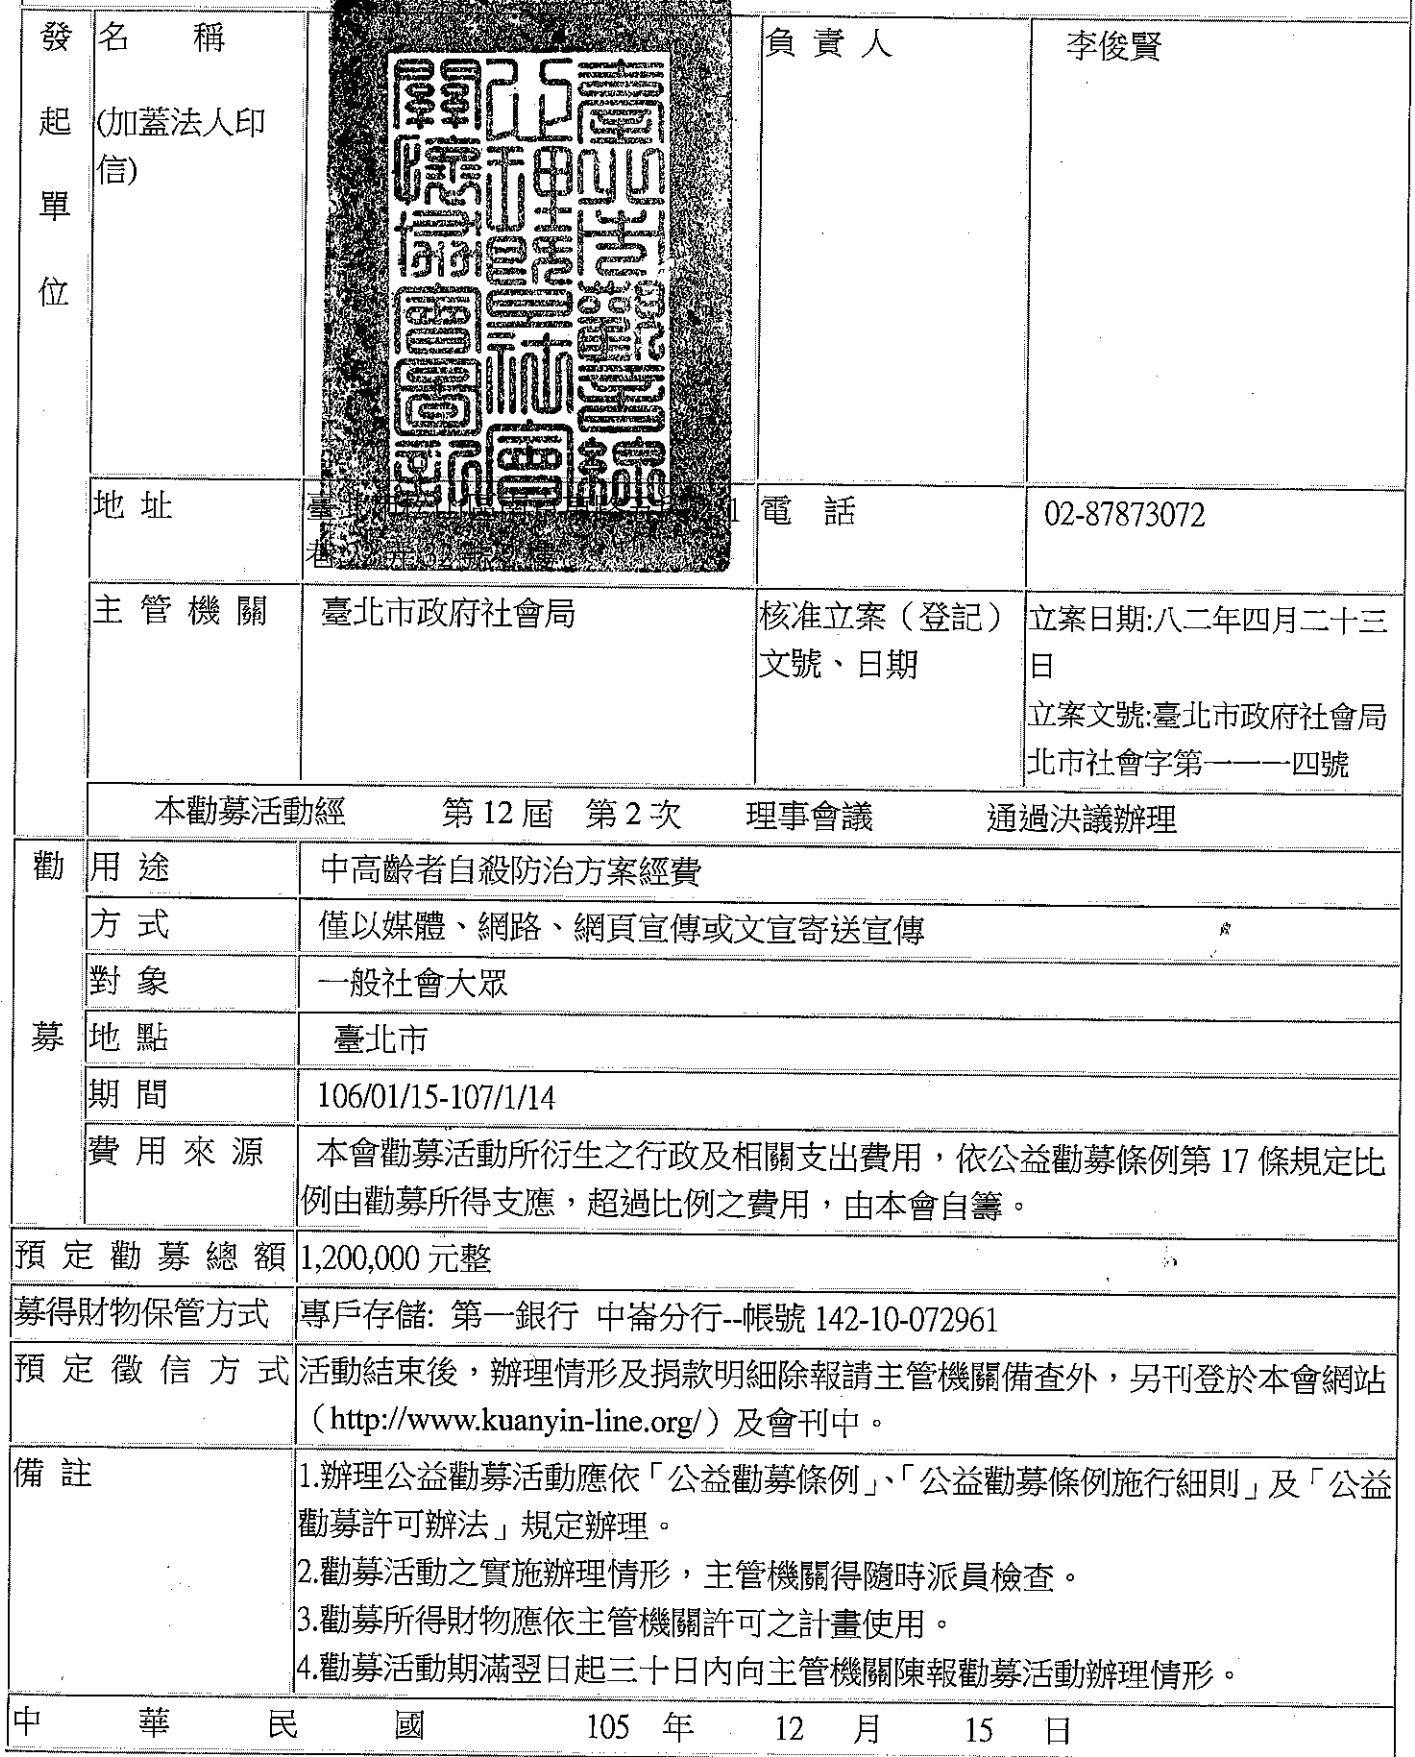 發起單位
名 稱
(加蓋法人印
信)
負 責 人
李俊賢
地 址
電 話
02-87873072
主 管 機 關
臺北市政府社會局
核准立案（登記）
文號、日期
立案日期:八二年四月二十三
日
立案文號:臺北市政府社會局
北市社會字第一一一四號
本勸募活動經 第 12 屆 第 2 次 理事會議 通過決議辦理
勸募
用 途
中高齡者自殺防治方案經費
方 式
僅以媒體、網路、網頁宣傳或文宣寄送宣傳
對 象
一般社會大眾
地 點
臺北市
期 間
106/01/15-107/1/14
費 用 來 源
本會勸募活動所衍生之行政及相關支出費用，依公益勸募條例第 17 條規定比
例由勸募所得支應，超過比例之費用，由本會自籌。
預 定 勸 募 總 額
1,200,000 元整
募得財物保管方式
專戶存儲: 第一銀行 中崙分行--帳號 142-10-072961
預 定 徵 信 方 式
活動結束後，辦理情形及捐款明細除報請主管機關備查外，另刊登於本會網站
（http://www.kuanyin-line.org/）及會刊中。
備 註
1.辦理公益勸募活動應依「公益勸募條例」、「公益勸募條例施行細則」及「公益
勸募許可辦法」規定辦理。
2.勸募活動之實施辦理情形，主管機關得隨時派員檢查。
3.勸募所得財物應依主管機關許可之計畫使用。
4.勸募活動期滿翌日起三十日內向主管機關陳報勸募活動辦理情形。
中 華 民 國 105 年 12 月 15 日